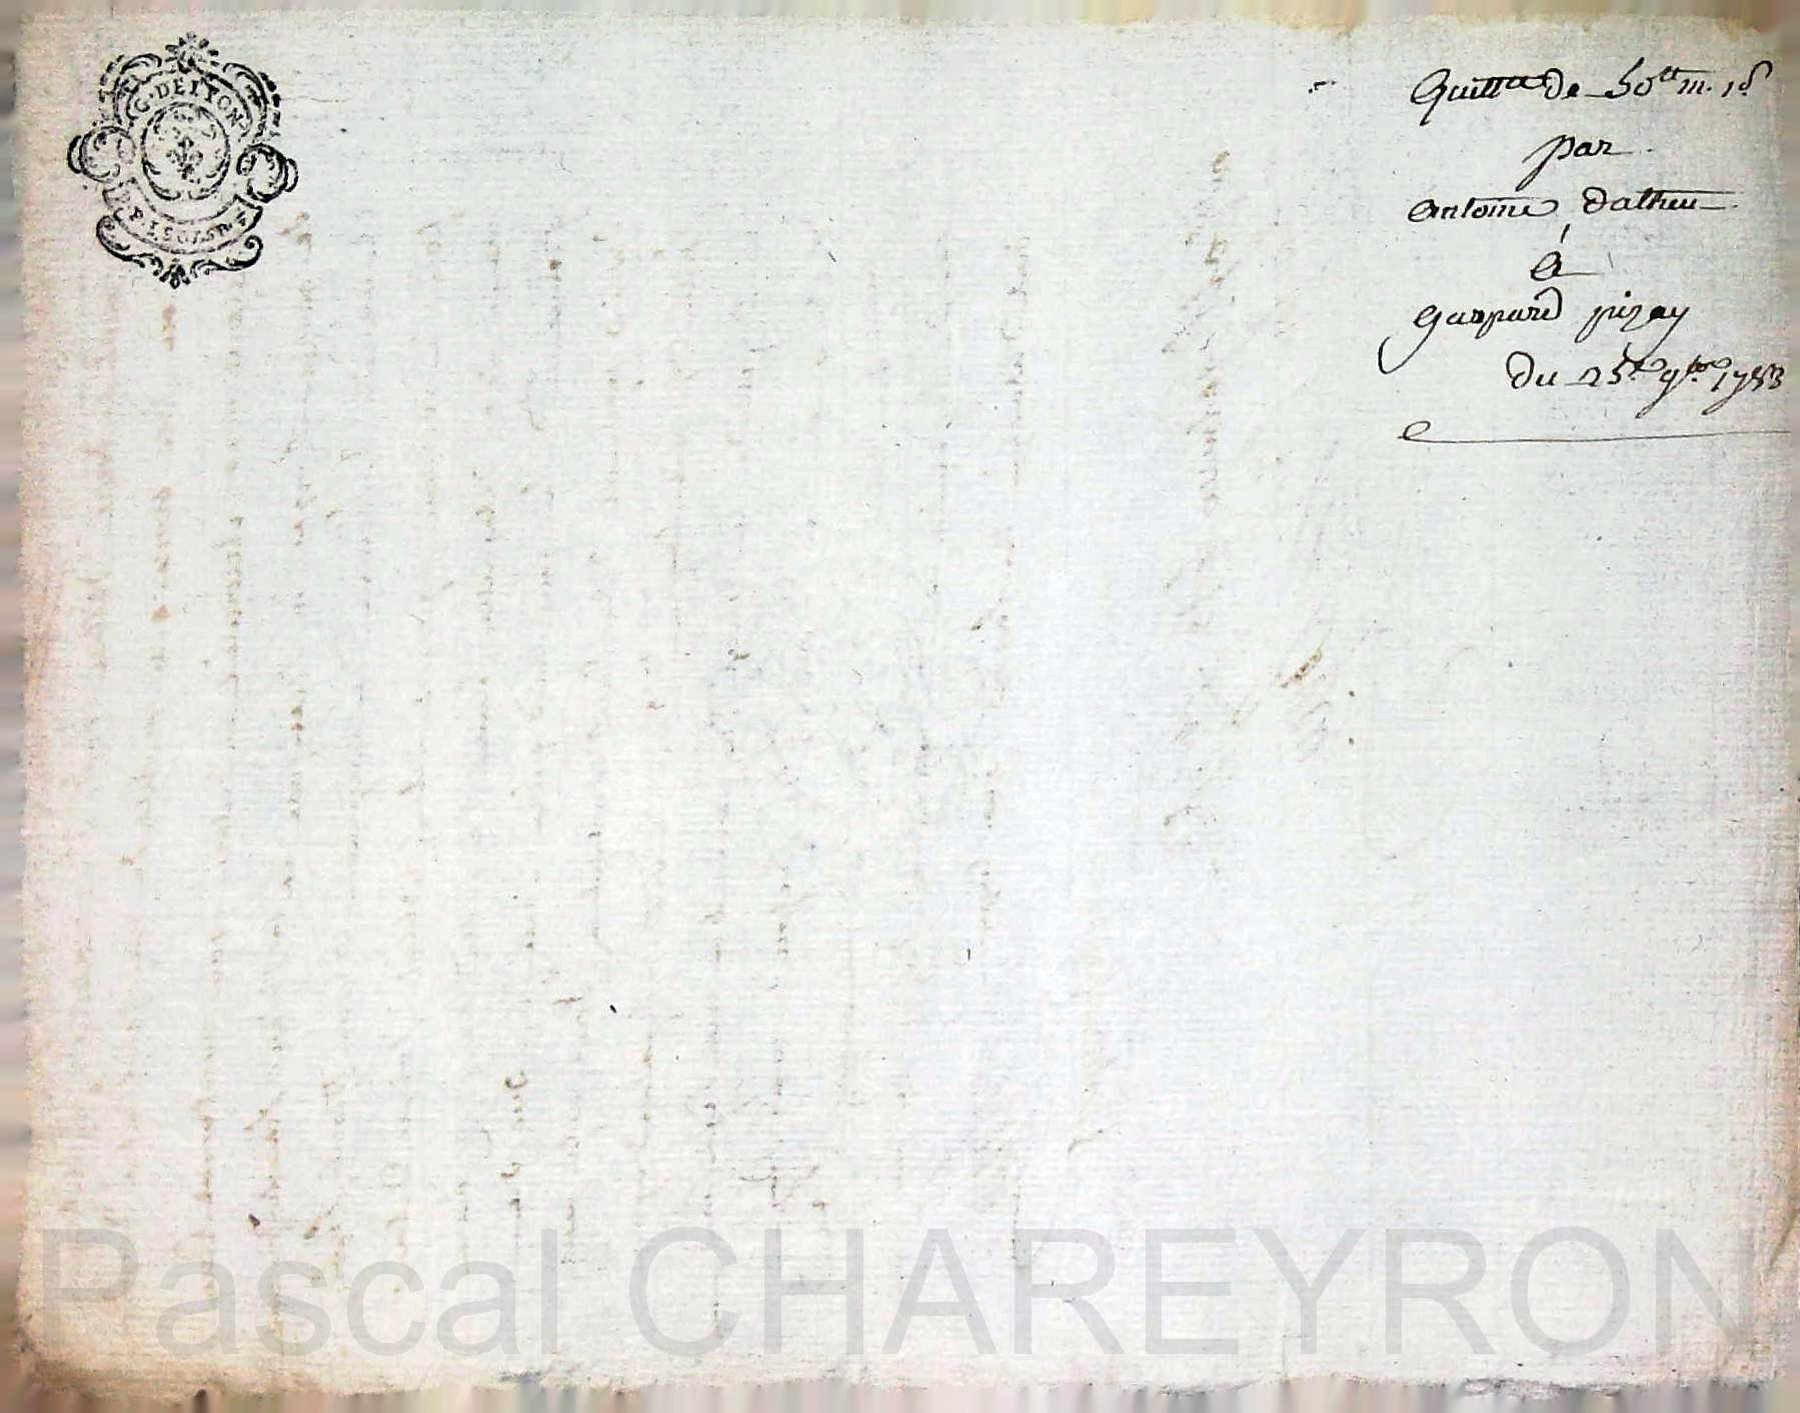 G. DE LYON
Quittce de 50tt m. 1d
par
antoine datheu
à
gaspard pizay
du 25e 9bre 1783
Pascal CHAREYRON